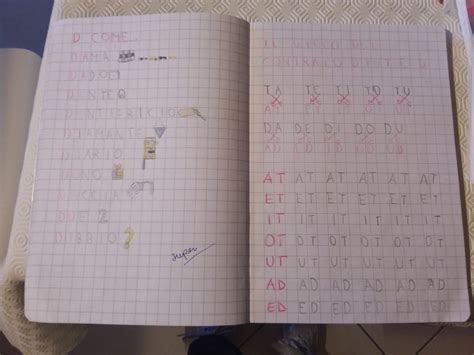 D COME
DAMA
DADO
DENTE
DENTIFRICIO
DIAMANTE
DIARIO
DINO
DUE 2
DUBBIO ?
super
IL
CONTRARIO DI
TA TE TI TO TU
DA DE DI DO DU
AD ED ID OD UD
AT AT AT AT AT AT
ET ET ET ET ET ET
IT IT IT IT IT IT
OT OT OT OT OT OT
UT UT UT UT UT UT
AD AD AD AD AD AD
ED ED ED ED ED ED